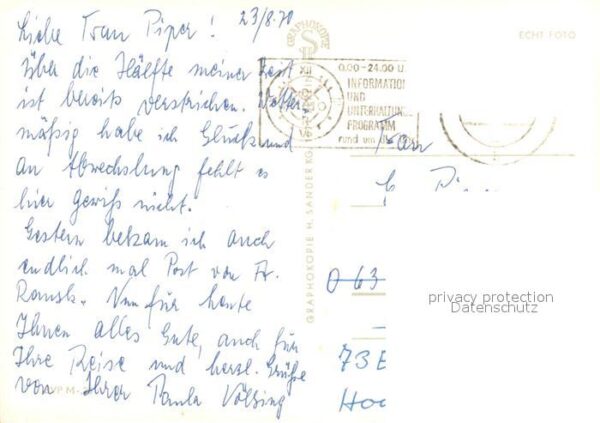 Liebe Frau Piper! 23/8.70
Über die Hälfte meiner Zeit
ist bereits verstrichen. Wetter-
mäßig habe ich Glück und
an Abwechslung fehlt es
hier gewiß nicht.
Gestern bekam ich auch
endlich mal Post von Fr.
Nun für heute
Ihnen alles Gute, auch für
Ihre Reise und herzl. Grüße
von Ihrer Paula Völzing
GRAPHOKOPIE
GRAPHOKOPIE H. SANDER KG.
ECHT FOTO
XII
0.00-24.00 U
INFORMATION
UND
UNTERHALTUN
PROGRAMM
rund um die
Frau
063
73E
Hoc
privacy protection
Datenschutz